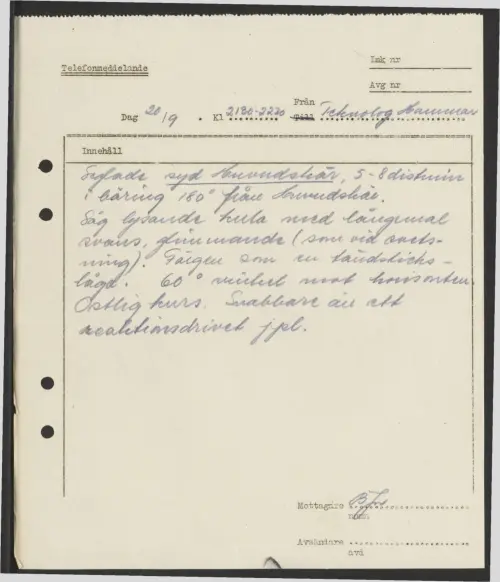 Ink nr
Telefonmeddelande
Avg nr
Från
Dag 20/9. Kl 2130-2220 Till Teknolog Hammar
Innehåll
Seglade syd Huvudskär, 5-8 distmin
i bäring 180° från Huvudskär.
Såg lysande kula med långsmal
svans, glimmande (som vid svets-
ning). Färgen som en tändsticks-
låga. 60° vinkel mot horisonten.
Ostlig kurs. Snabbare än ett
reaktionsdrivet jpl.
Mottagare
namn
Avsändare
avd